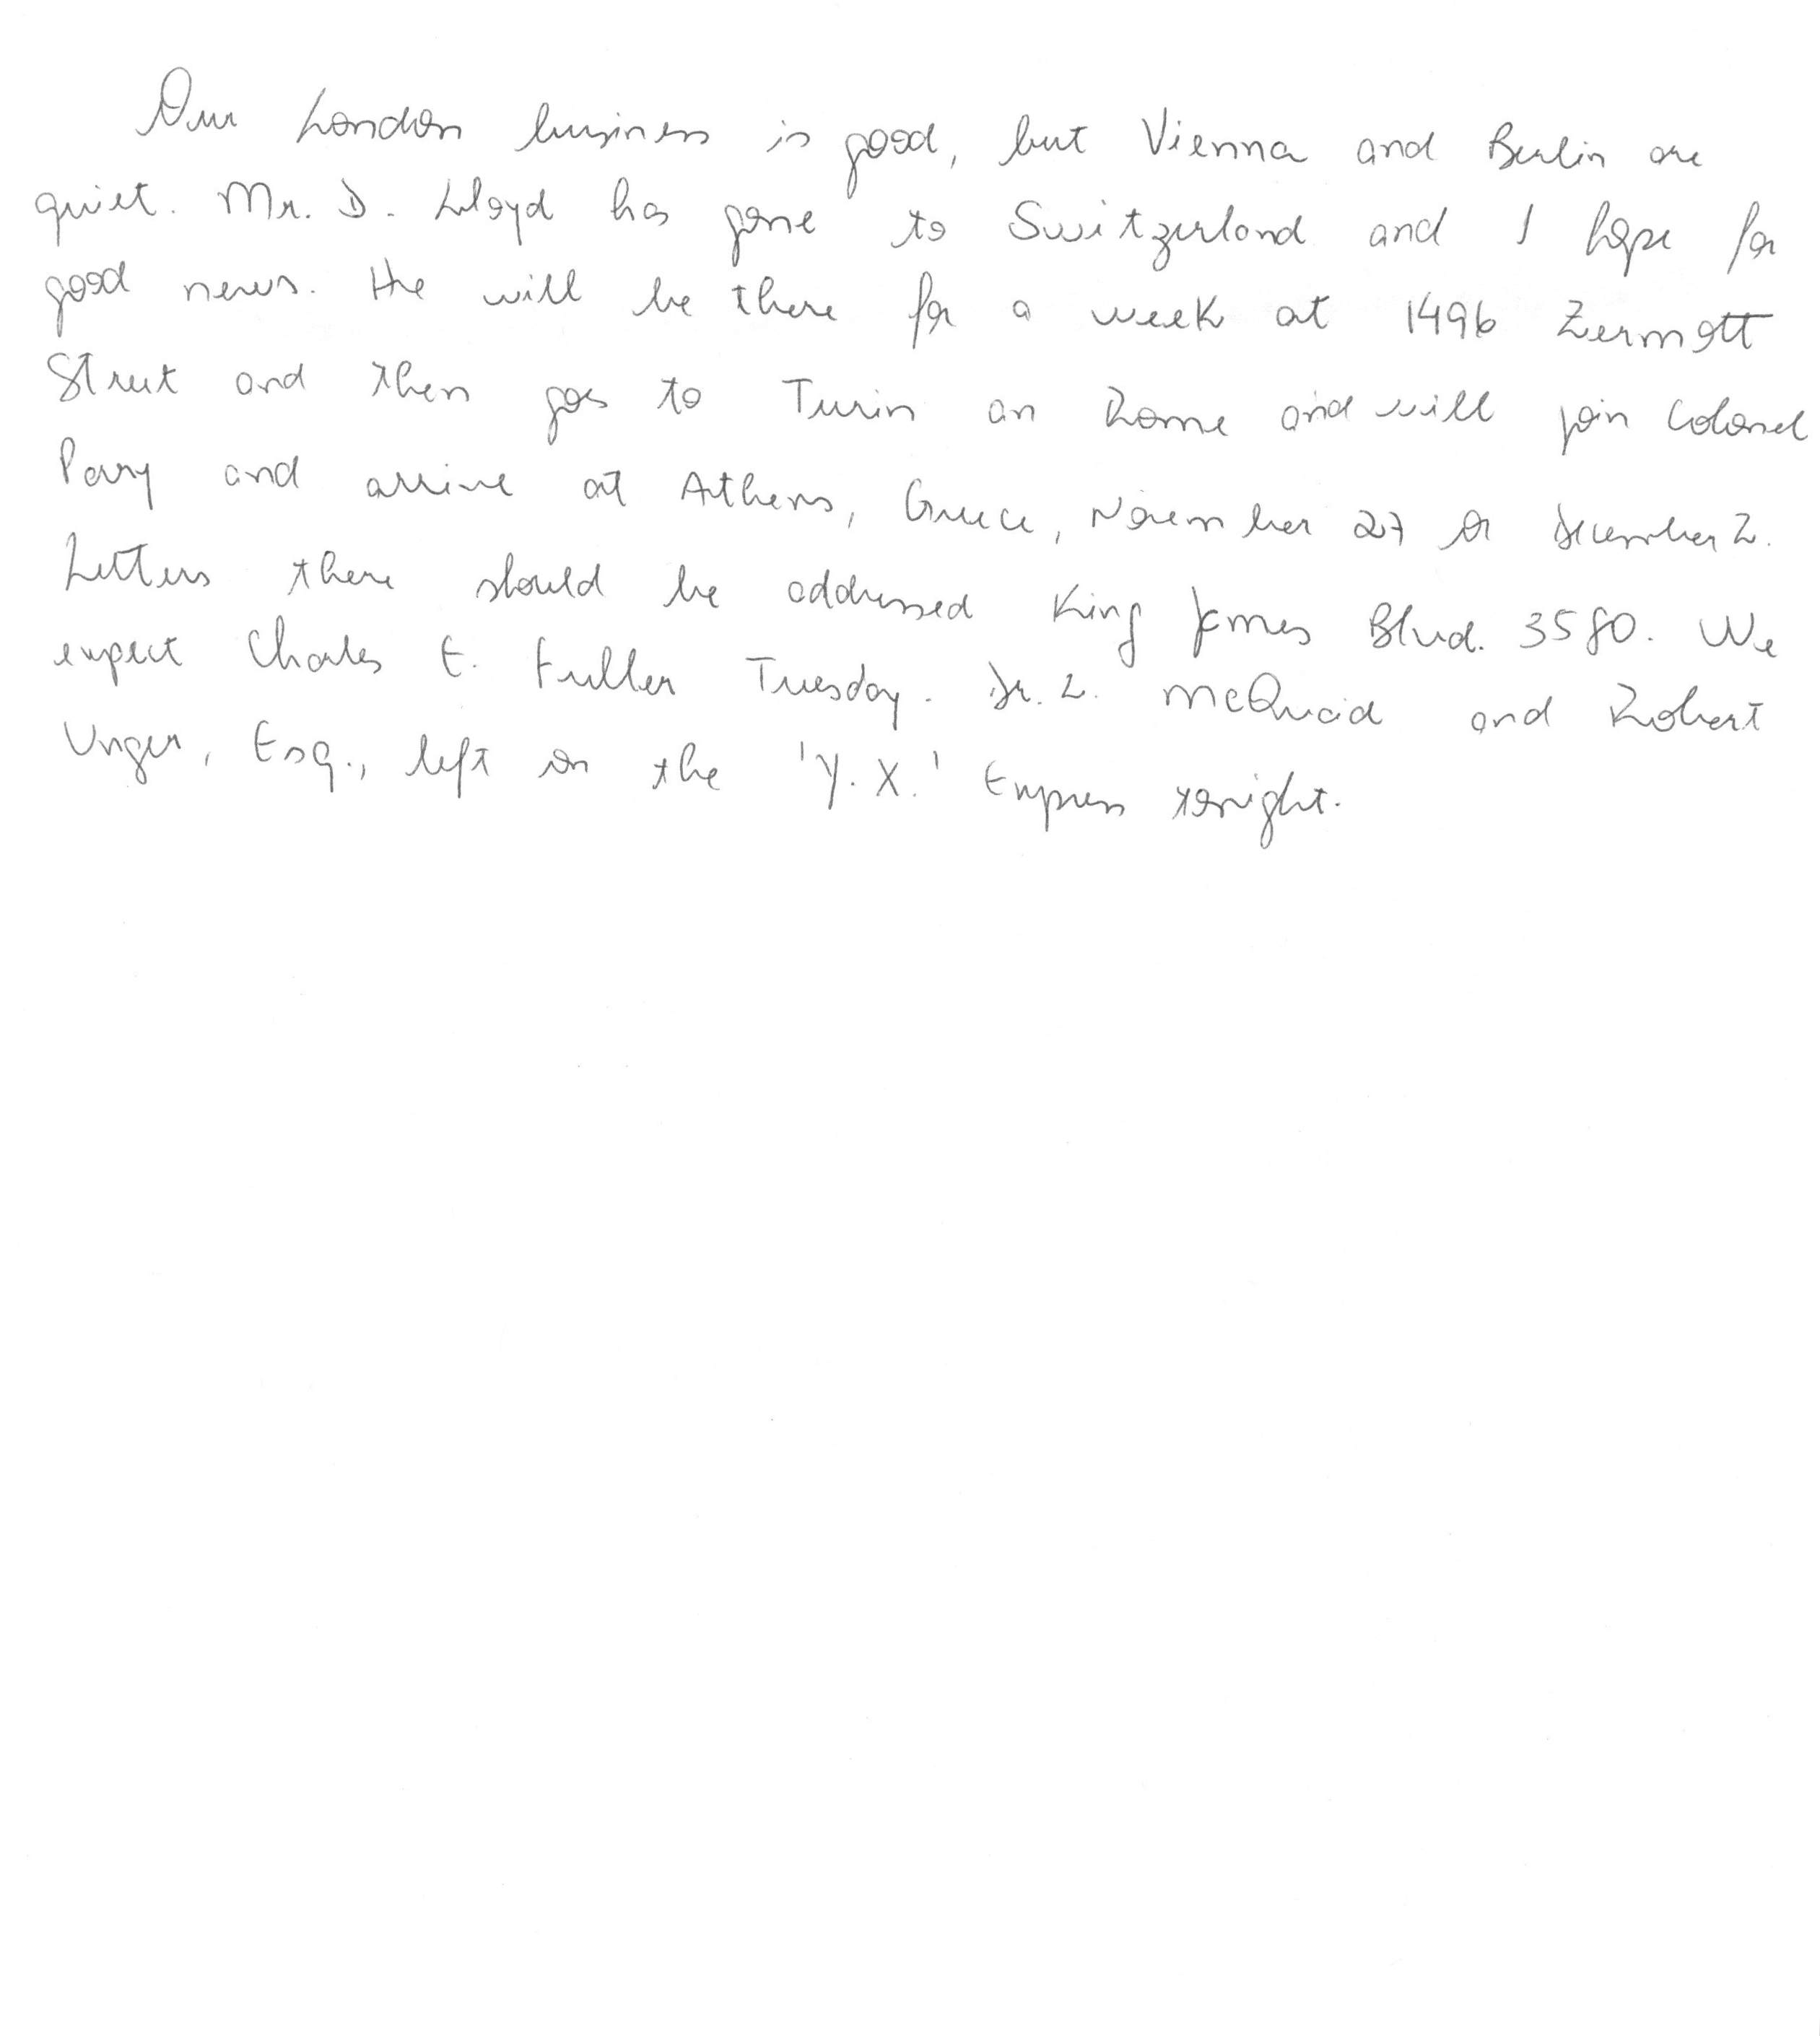 Our London business is good, but Vienna and Berlin are
quiet. Mr. D. Lloyd has gone to Switzerland and I hope for
good news. He will be there for a week at 1496 Zermott
Street and then goes to Turin an Rome and will join Colonel
Parry and arrive at Athens, Greece, November 27 or December 2.
Letters there should be addressed King James Blvd. 3580. We
expect Charles E. Fuller Tuesday. Dr. L. McQuaid and Robert
Unger, Esq., left on the 'Y.X.' Express tonight.